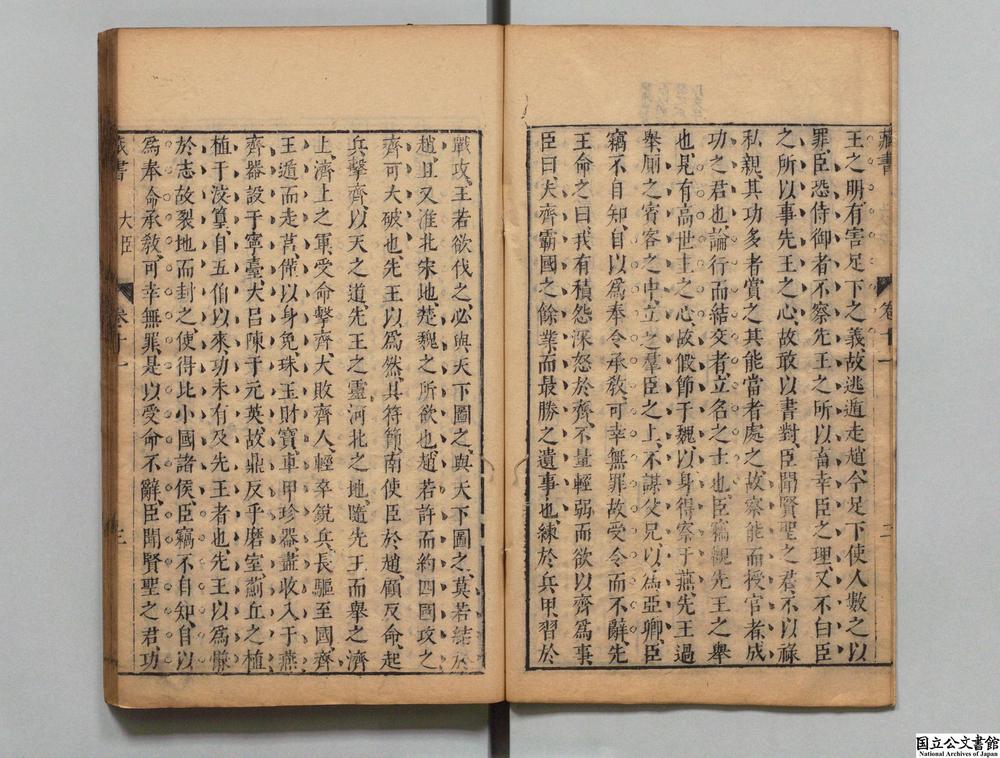 藏書
卷十一
二
王之明有害足下之義故逃遁走趙今足下使人數之以
罪臣恐侍御者不察先王之所以畜幸臣之理又不白臣
之所以事先王之心故敢以書對臣聞賢聖之君不以祿
私親其功多者賞之其能當者處之故察能而授官者成
功之君也論行而結交者立名之士也臣竊觀先王之舉
也見有高世主之心故假節于魏以身得察于燕先王過
舉厠之賓客之中立之羣臣之上不謀父兄以爲亞卿臣
竊不自知自以爲奉令承教可幸無罪故受令而不辭先
王命之曰我有積怨深怒於齊不量輕弱而欲以齊爲事
臣曰夫齊霸國之餘業而最勝之遺事也練於兵甲習於
戰攻王若欲伐之必與天下圖之與天下圖之莫若結於
趙且又淮北宋地楚魏之所欲也趙若許而約四國攻之
齊可大破也先王以爲然具符節南使臣於趙顧反命起
兵擊齊以天之道先王之靈河北之地隨先王而舉之濟
上濟上之軍受命擊齊大敗齊人輕卒銳兵長驅至國齊
王遁而走莒僅以身免珠玉財寶車甲珍器盡收入于燕
齊器設于寧臺大呂陳于元英故鼎反乎磨室薊丘之植
植于汶篁自五伯以來功未有及先王者也先王以爲慊
於志故裂地而封之使得比小國諸侯臣竊不自知自以
爲奉命承教可幸無罪是以受命不辭臣聞賢聖之君功
藏書
大臣
卷十一
三
国立公文書館
National Archives of Japan